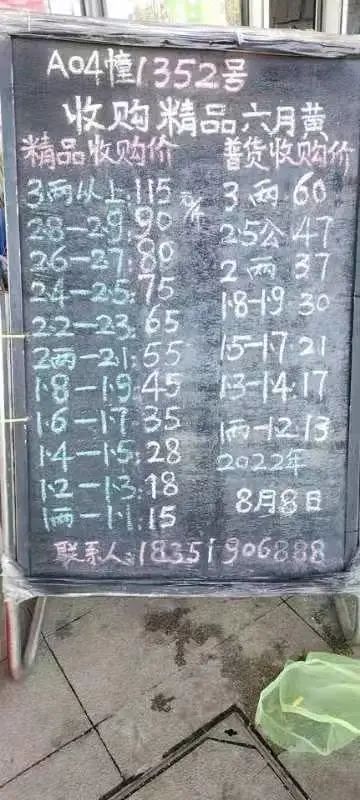 A04幢1352号
收购精品六月黄
精品收购价
3两以上:115元/斤
28-29:90
26-27:80
24-25:75
22-23:65
2两-21:55
1·8-1·9:45
1·6-1·7:35
1·4-1·5:28
1·2-1·3:18
1两-1·1:15
普货收购价
3两 60
25公 47
2两 37
1·8-1·9 30
1·5-1·7 21
1·3-1·4·17
1两-1·2·13
2022年
8月8日
联系人:18351906888